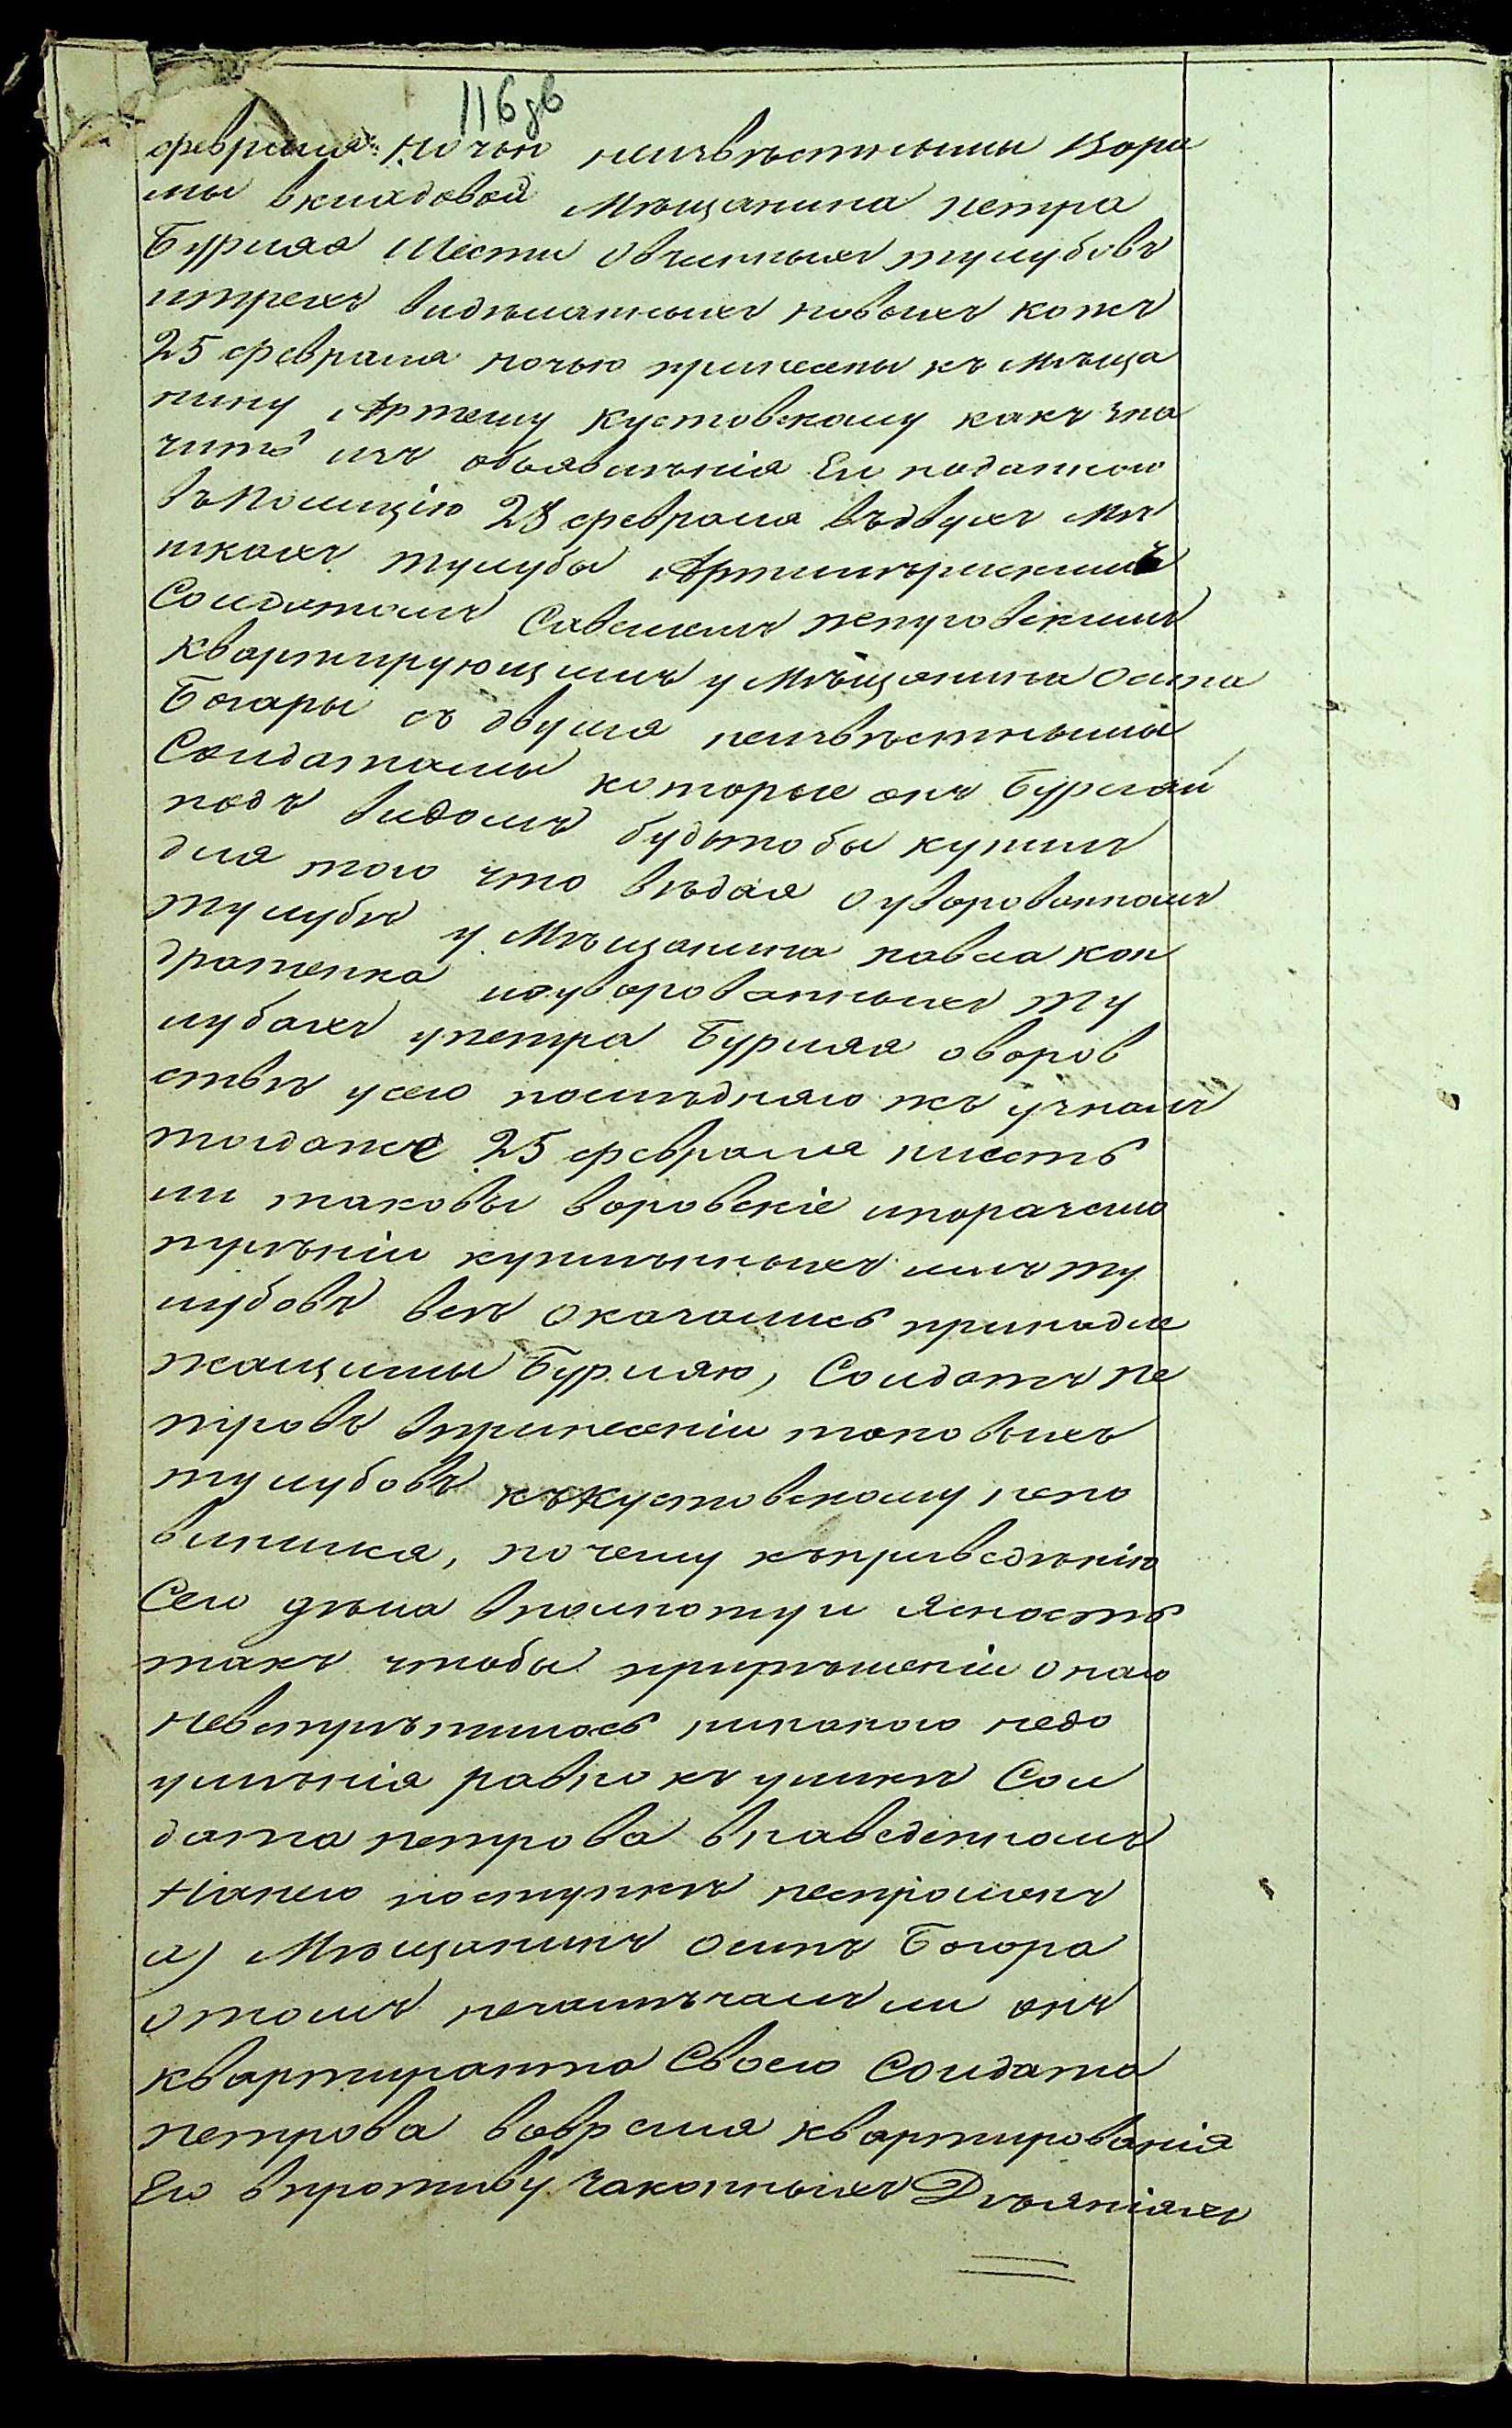 116 зв
февраля ночью неизвѣстными вора
мы вкладовой Мѣщанина петра
Бурлая Шести овчинныхъ тулубовъ
итрехъ видѣланныхъ новыхъ кожъ
25 февраля ночью принесены къ мѣща
нину Артему Кустовскому какъ зна
читъ изъ обьявленія Ею поданного
въ полицію 28 февраля въдвухъ мѣ
шкахъ тулубы Артилѣрискимъ
Солдатомъ Савелиемъ петровскимъ
квартирующимъ у Мѣщанина Осипа
Богары съ двумя неизвѣстными
Солдатами которые онъ Бурлай
подъ видомъ будьтобы купилъ
для того что вѣдая оуворованномъ
тулубѣ у Мѣщанина павла кон
дратенка иоуворованныхъ ту
лубахъ упетра Бурлая оворов
ствѣ усего послѣдняго жъ узналъ
тогдаже 25 февраля нѣестъ
ли таковы воровскіе ипоразсмо
трѣніи купленныхъ имъ ту
лубовъ всѣ оказались принадле
жащими Бурлаю, Солдатъ пе
тровъ впринесеніи таковыхъ
тулубовъ къ Кустовскому непо
винился, почему къприведѣнію
Сего дѣла вполноту и ясность
такъ чтобы прирѣшеніи онаго
невстрѣтилось никакого недо
умѣнія равно къ уликѣ Сол
дата петрова внаведенномъ
Нанего поступкѣ неспрошенъ
а) Мѣщанинъ осипъ Богора
отомъ незамѣчалъ ли онъ
квартиранта Своего Солдата
петрова вовремя квартированія
Его впротиву законныхъ Дѣяніяхъ